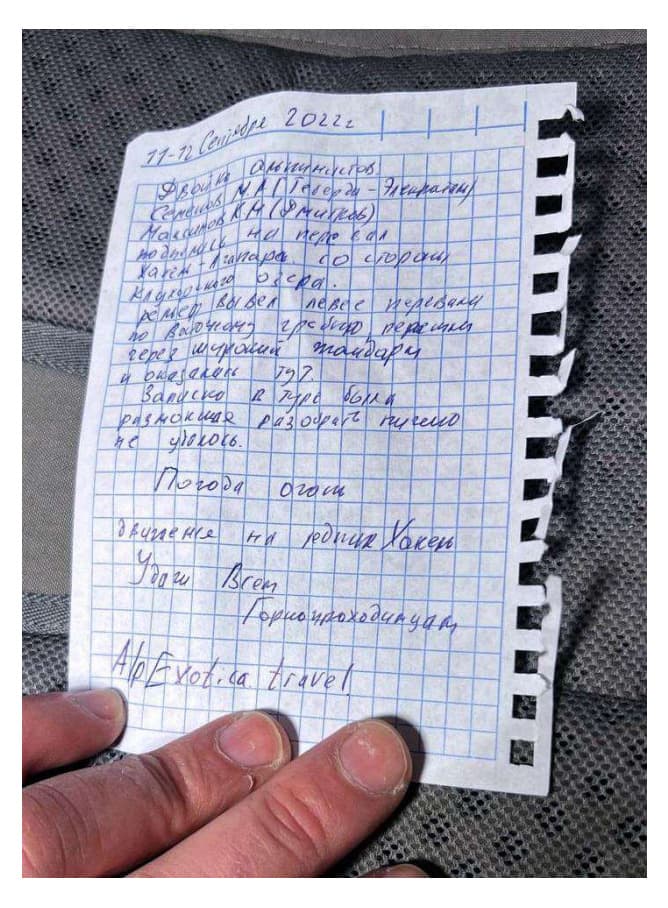 11-12 Сентября 2022г
Двойка альпинистов
Семенов М.А (Теберда-
Максимов К М (Дмитров)
поднялись на перевал
Хакель со стороны
Клухорского озера.
рельеф вывел левее перевала
по восточному гребню перешли
через широкий жандарм
и оказались тут.
Записка в туре была
размокшая разобрать письмо
не удалось.
Погода огонь
движение на ледник Хакель
Удачи Всем
Горнопроходимцам
AlpExotica travel